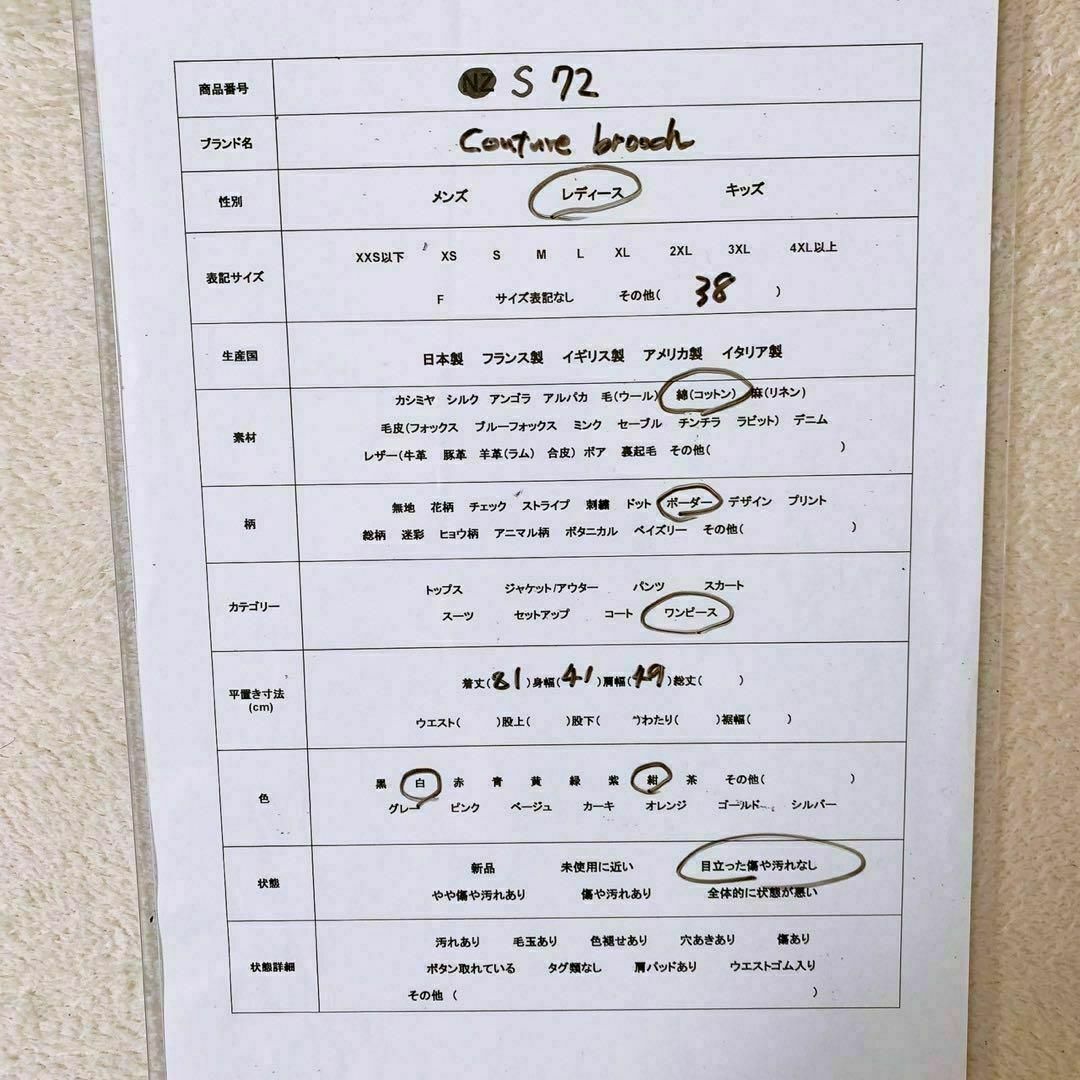 商品番号 NZ S 72
ブランド名 Couture brooch
性別 メンズ レディース キッズ
表記サイズ
XXS以下 XS S M L XL 2XL 3XL 4XL以上
F サイズ表記なし その他( 38 )
生産国 日本製 フランス製 イギリス製 アメリカ製 イタリア製
素材
カシミヤ シルク アンゴラ アルパカ 毛(ウール) 綿(コットン) 麻(リネン)
毛皮(フォックス ブルーフォックス ミンク セーブル チンチラ ラビット) デニム
レザー(牛革 豚革 羊革(ラム) 合皮) ボア 裏起毛 その他( )
柄
無地 花柄 チェック ストライプ 刺繍 ドット ボーダー デザイン プリント
総柄 迷彩 ヒョウ柄 アニマル柄 ボタニカル ペイズリー その他( )
カテゴリー
トップス ジャケット/アウター パンツ スカート
スーツ セットアップ コート ワンピース
平置き寸法
(cm)
着丈(81)身幅(41)肩幅(49)総丈( )
ウエスト( )股上( )股下( )わたり( )裾幅( )
色
黒 白 赤 青 黄 緑 紫 紺 茶 その他( )
グレー ピンク ベージュ カーキ オレンジ ゴールド シルバー
状態
新品 未使用に近い 目立った傷や汚れなし
やや傷や汚れあり 傷や汚れあり 全体的に状態が悪い
状態詳細
汚れあり 毛玉あり 色褪せあり 穴あきあり 傷あり
ボタン取れている タグ類なし 肩パッドあり ウエストゴム入り
その他 ( )